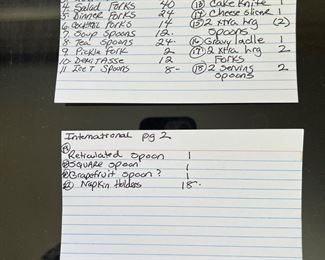 4 Salad Forks 40
5 Dinner Forks 24
6 Cocktail Forks 14
7 Soup Spoons 12.
8 Tea Spoons 24.
9 Pickle Fork 2
10 Demitasse 12
11 Ice T Spoons 8-
(13) Cake Knife 1
(14) Cheese Slicer 1
2 xtra lrg (2)
spoons
(16) Gravy ladle 1
(17) 2 xtra lrg 2
Forks
(18) 2 Serving 2
spoons
International pg 2
Reticulated spoon 1
Square spoon 1
Grapefruit spoon ? 1
Napkin Holders 18.